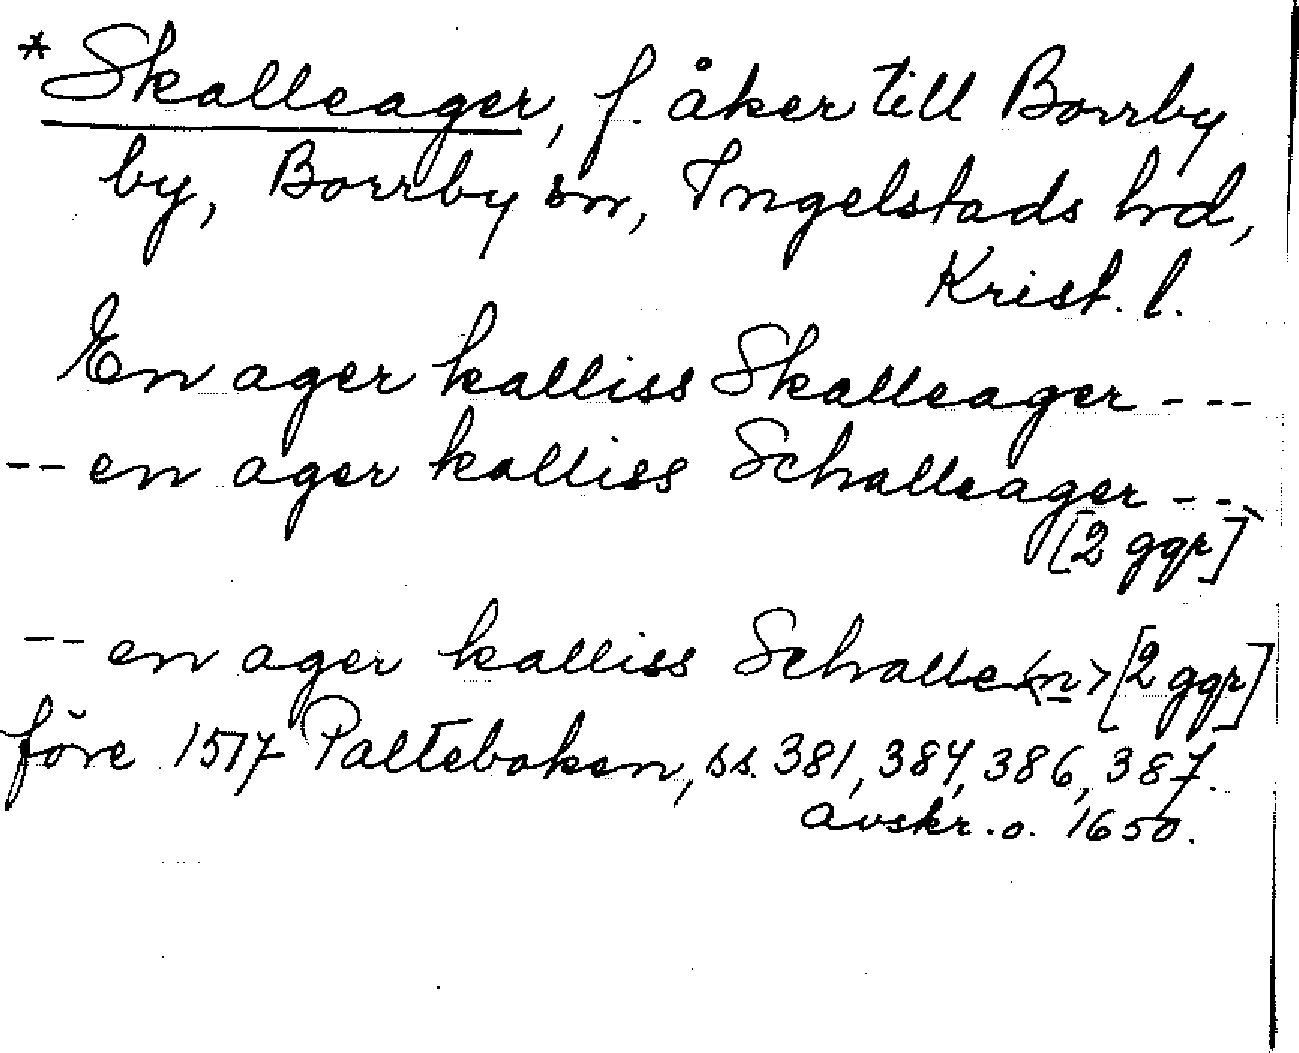 *Skalleager, f. åker till Borrby
by, Borrby sn, Ingelstads hrd,
Krist. l.
En ager kalliss Skalleager ---
-- en ager kalliss Schalleager ---
[2 ggr]
-- en ager kalliss Schalle<n> [2 ggr]
före 1517 Palteboken, ss. 381, 384, 386, 387.
avskr. o. 1650.